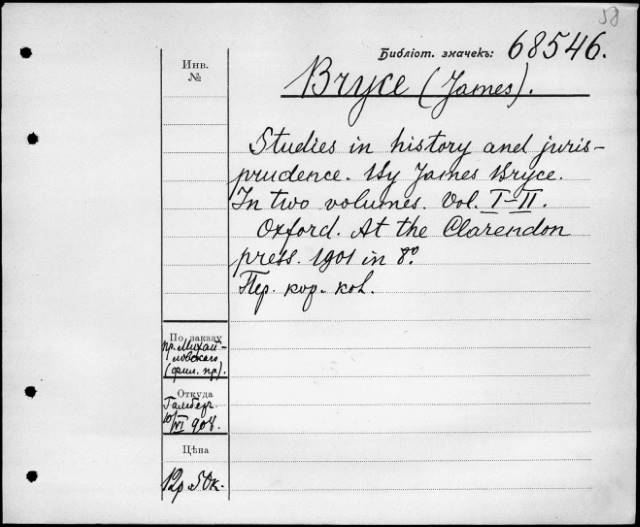 58
Библіот. значекъ: 68546.
Инв.
№
Bryce (James).
Studies in history and juris-
prudence. By James Bryce.
In two volumes. Vol. I-II.
Oxford. At the Clarendon
press. 1901 in 8º
Пер. кор. кол.
По заказу
пр. Михай-
ловскаго
(фил. пр).
Откуда
10/VI 908.
Цѣна
12р. 50к.